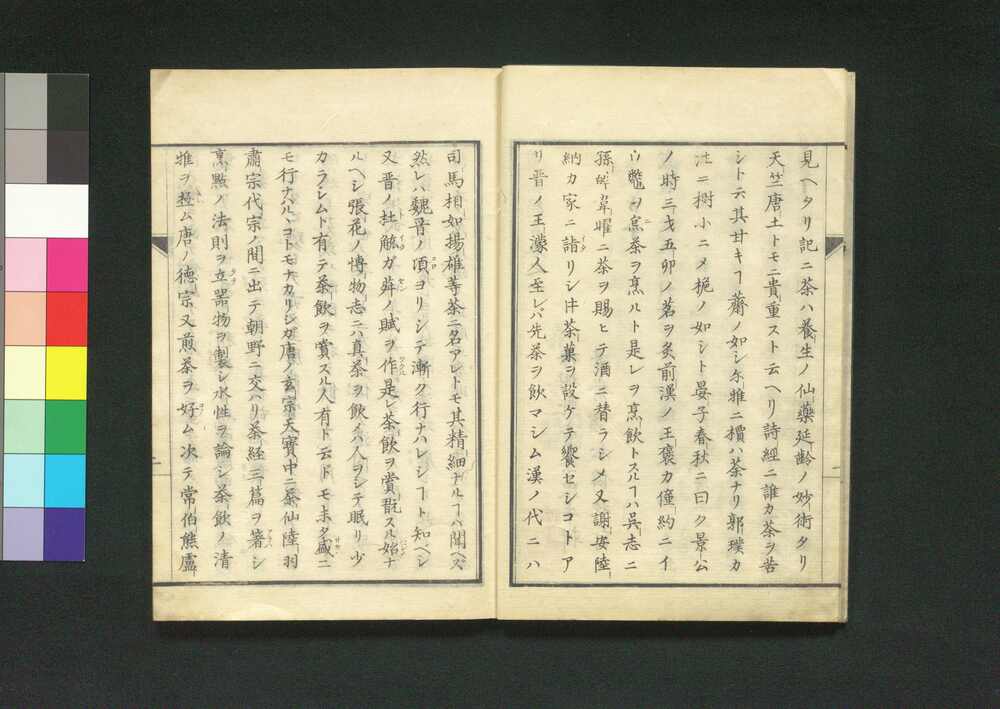 見ヘタリ記ニ茶ハ養生ノ仙藥延齢ノ妙術タリ
天竺唐土トモニ貴重スト云ヘリ詩經ニ誰カ茶ヲ苦
シト云其甘キヿ薺ノ如シ尓雅ニ檟ハ茶ナリ郭璞カ
註ニ樹小ニ〆梔ノ如シト晏子春秋ニ曰ク景公
ノ時三弋五卯ノ茗ヲ炙前漢ノ王褒カ僮約ニイ
ハ鼈ヲ炰茶ヲ烹ルト是レヲ烹飲トスルヿハ呉志ニ
孫皓韋曜ニ茶ヲ賜ヒテ酒ニ替ラシメ又謝安陸
納カ家ニ詣リシ時茶菓ヲ設ケテ饗セシコトア
リ晋ノ王濛人至レバ先茶ヲ飲マシム漢ノ代ニハ
司馬相如揚雄等茶ニ名アレトモ其精細ナルヿハ聞ヘズ
然レハ魏晉ノ頃ヨリシテ漸ク行ナハレシヿト知ヘシ
又晋ノ杜毓ガ荈ノ賦ヲ作是レ茶飲ヲ賞翫スル始ナ
ルヘシ張花ノ博物志ニハ真茶ヲ飲メハ人ヲシテ眠リ少
カラシムト有テ茶飲ヲ賞スル人有ト云ドモ未タ盛ニ
モ行ナハルヽコトモナカリシガ唐ノ玄宗天寶中ニ茶仙陸羽
肅宗代宗ノ間ニ出テ朝野ニ交ハリ茶経三篇ヲ著シ
烹點ノ法則ヲ立器物ヲ製シ水性ヲ論シ茶飲ノ清
雅ヲ極ム唐ノ徳宗又煎茶ヲ好ム次テ常伯熊盧